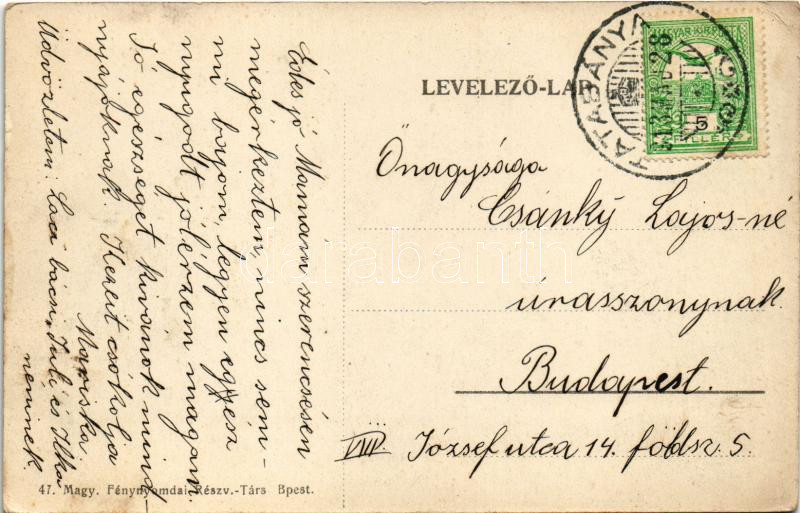 LEVELEZŐ-LAP
TATABÁNYA
MAGYAR KIR. POSTA
5
FILLÉR
Önagysága
Csánky Lajos-né
úrasszonynak
Budapest.
VIII József utca 14. földsz. 5.
Édes jó Mamám szerencsésen
megérkeztem, nincs sem-
mi bajom, legyen egész
nyugodt jólérzem magam.
Jó egészséget kivánok mind-
nyájoknak. Kezeit csókolja
Mariska
Üdvözletem: Laci bácsi, Juli és Ilka
nemnek.
47. Magy. Fénynyomdai Részv.-Társ Bpest.
darabanth